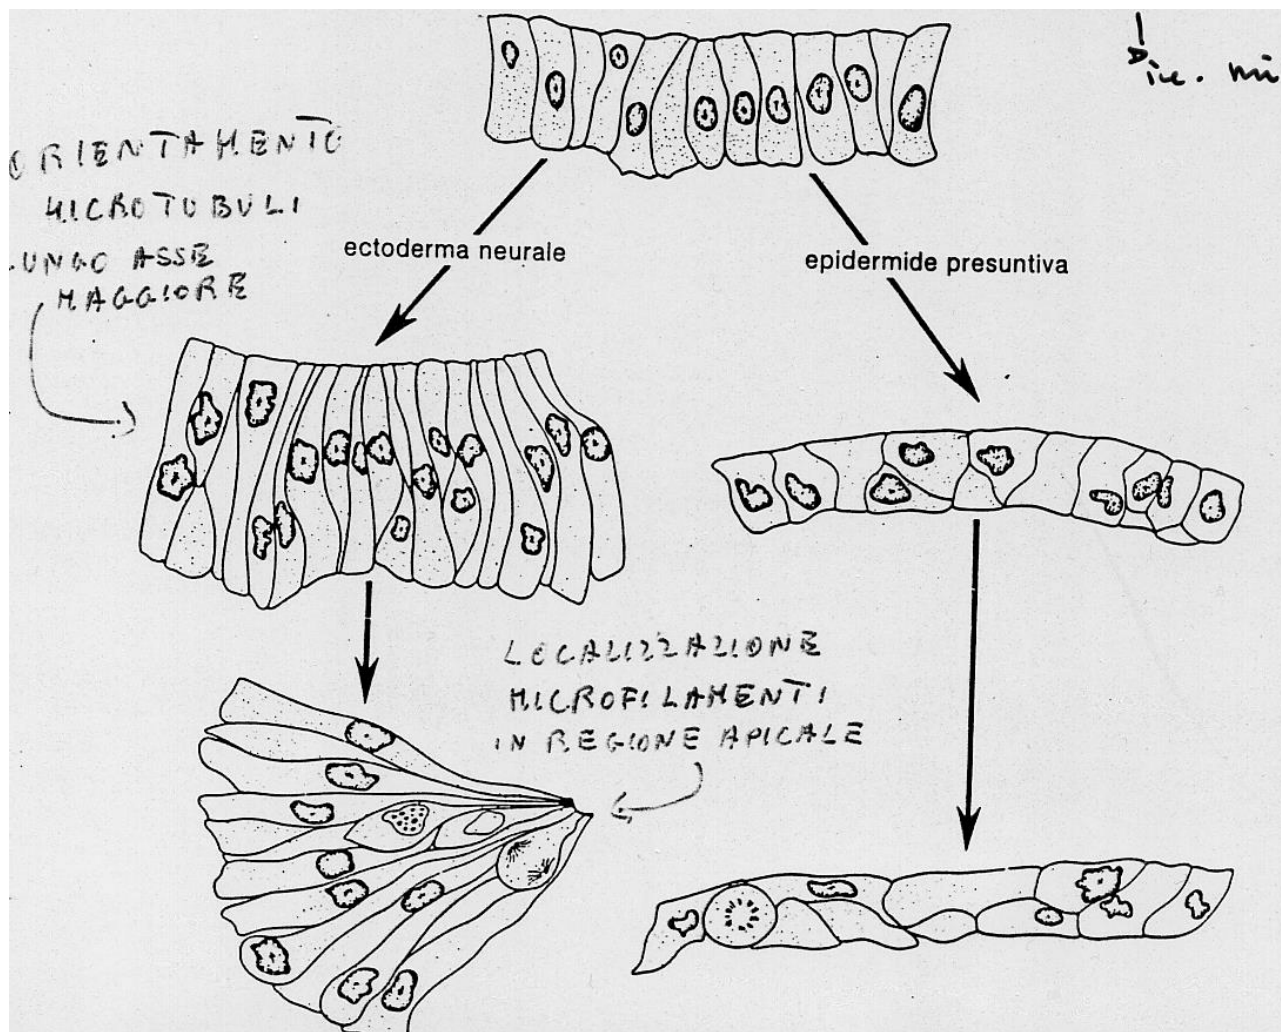 ORIENTAMENTO
MICROTUBULI
LUNGO ASSE
MAGGIORE
ectoderma neurale
epidermide presuntiva
LOCALIZZAZIONE
MICROFILAMENTI
IN REGIONE APICALE